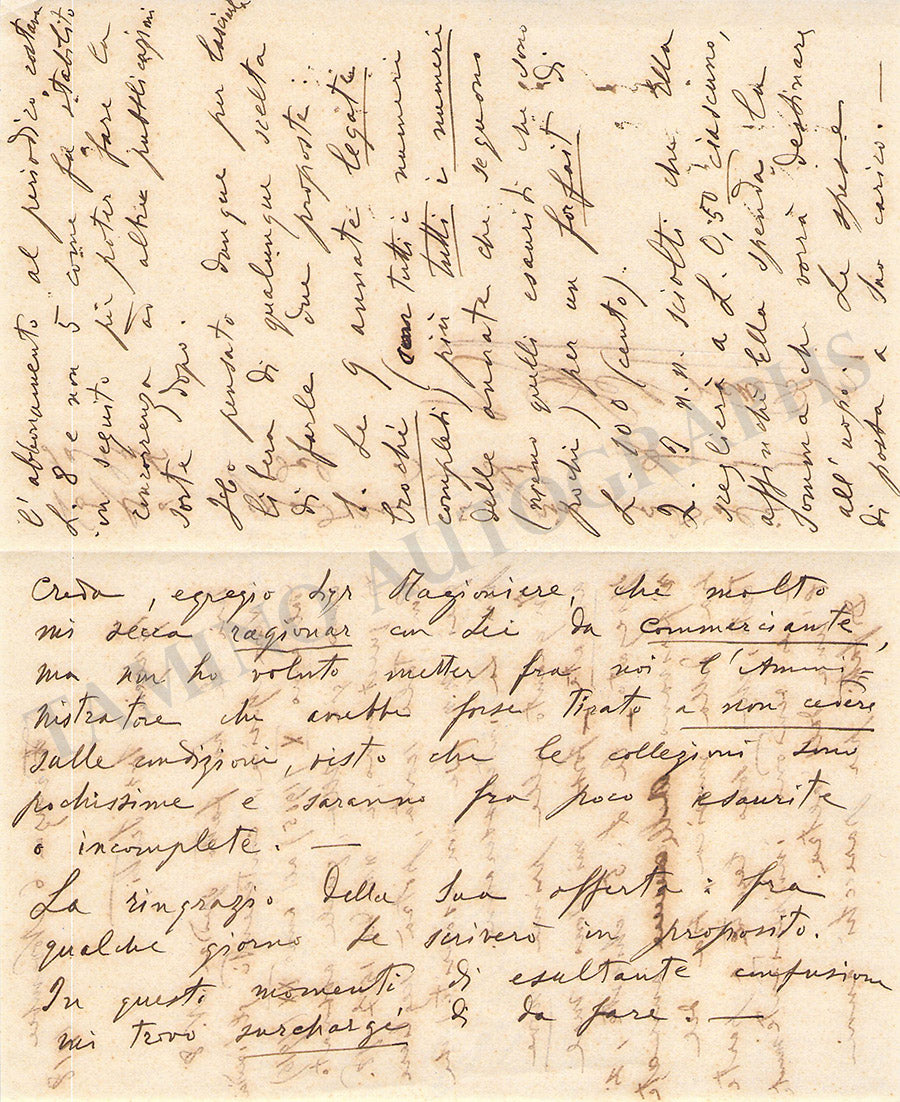 l'abbonamento al periodico costava
L. 8 e non 5 come fu stabilito
in seguito per poter fare la
concorrenza ad altre pubblicazioni
sorte dopo.
Ho pensato dunque per lasciarle
libera di qualunque scelta
di farle due proposte:
1. Le 9 annate legate
(tutti i numeri
completi) più tutti i numeri
delle annate che seguono
(meno quelli esauriti che sono
pochi) per un forfait di
L. 100 (cento).
2. I n.n. sciolti che Ella
sceglierà a L. 0,50 ciascuno,
affinchè Ella spenda la
somma che vorrà destinare
all'uopo. Le spese
di posta a suo carico. —
Creda, egregio Sigr Ragioniere, che molto
mi secca ragionar con Lei da commerciante,
ma non ho voluto metter fra noi l'Ammi=
nistratore che avrebbe forse tirato a non cedere
sulle condizioni, visto che le collezioni sono
pochissime e saranno fra poco esaurite
o incomplete. —
La ringrazio della Sua offerta: fra
qualche giorno Le scriverò in proposito.
In questi momenti di esultante confusione
mi trovo surchargé di da fare. —
TAMINO AUTOGRAPHS